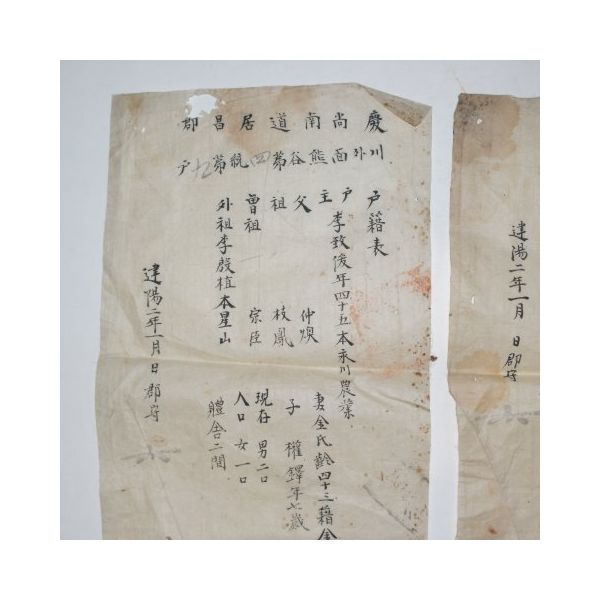 慶尚南道居昌郡
川外面熊谷第四統第十五戶
戶籍表
戶主 李致俊年四十五本永川農業
妻金氏齡四十三籍金
父 仲煥
子 權鐸年七歲
祖 枝鳳
現存 男二口
曾祖 宗臣
人口 女一口
外祖李啟植本星山
體舍二間
建陽二年一月 日郡守
建陽二年一月 日郡守